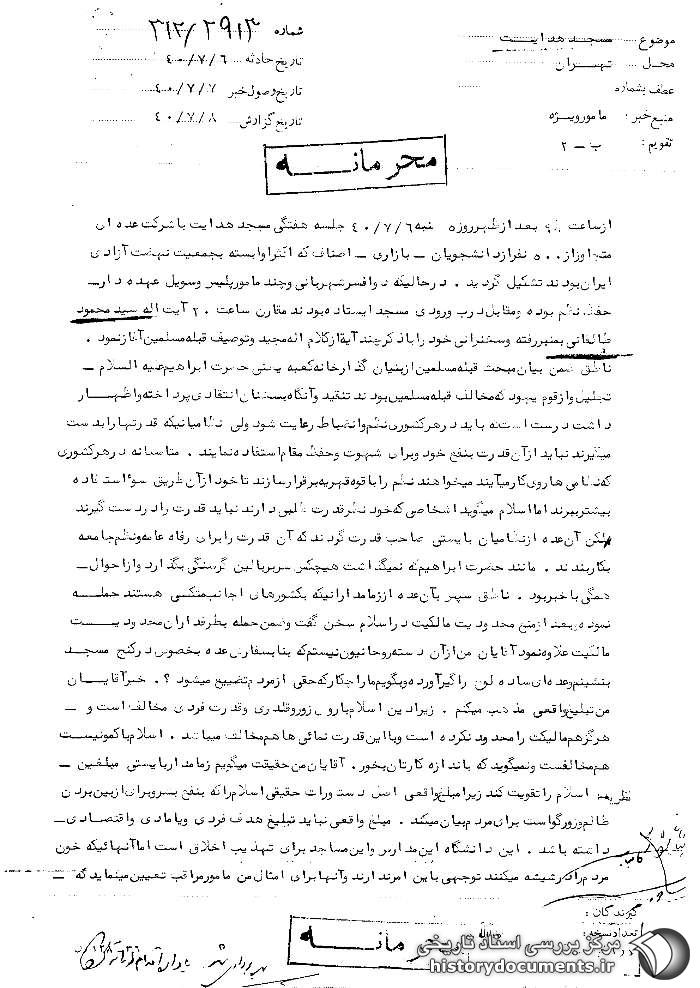 موضوع : مسجد هدایت
محل : تهران
عطف بشماره
منبع خبر : مامور ویژه
تقویم : ب – ۲
شماره ۳۱۲/۲۹۱۳
تاریخ حادثه ۴۰/۷/۶
تاریخ وصول خبر ۴۰/۷/۷
تاریخ گزارش ۴۰/۷/۸
محرمانه
از ساعت بعد از ظهر روز شنبه ۴۰/۷/۶ جلسه هفتگی مسجد هدایت با شرکت عده ای
متجاوز از ۵۰۰ نفر از دانشجویان – بازاری – اصناف که اکثرا وابسته بجمعیت نهضت آزادی
ایران بودند تشکیل گردید . در حالیکه دو افسر شهربانی و چند مامور پلیس وسویل عهده دار –
حفظ نظم بوده ومقابل درب ورودی مسجد ایستاده بودند مقارن ساعت ۲۰ آیت اله سید محمود
طالقانی بمنبر رفته وسخنرانی خود را با ذکر چند آیه از کلام اله مجید وتوصیف قبله مسلمین آغاز نمود .
ناطق ضمن بیان مبحث قبله مسلمین از بنیان گذار خانه کعبه یعنی حضرت ابراهیم علیه السلام –
تجلیل واز قوم یهود که مخالف قبله مسلمین بودند تنقید وآنگاه بسخنان انتقادی پرداخته واظهار
داشت درست است که باید در هر کشوری نظم وانضباط رعایت شود ولی نظامیانیکه قدرتها را بدست
میگیرند نباید از آن قدرت بنفع خود وبرای شهوت وحفظ مقام استفاده نمایند . متاسفانه در هر کشوری
که نظامی ها روی کار میآیند میخواهند نظم را با قوه قهریه برقرار سازند تا خود از آن طریق سوء استفاده
بیشتر ببرند اما اسلام میگوید اشخاصی که خود نظر قدرت طلبی دارند نباید قدرت را در دست گیرند
بلکه آن عده از نظامیان بایستی صاحب قدرت گردند که آن قدرت را برای رفاه عامه ونظم جامعه
بکار بندند . مانند حضرت ابراهیم که نمیگذاشت هیچکس سر ببالین گرسنگی بگذارد واز احوال –
همگی باخبر بود . ناطق سپس بآن عده از زمامدارانیکه بکشورهای اجانب متکی هستند حمله
نموده وبعد از منع محدودیت مالکیت در اسلام سخن گفت وضمن حمله بطرفداران محدودیت
مالکیت علاوه نمود آقایان من از آن دسته روحانیون نیستم که بنا بسفارش عده بخصوص در کنج مسجد
بنشینم وعده ای ساده لوح را گیر آورده وبگویم ما را چکار که حقی از مردم تضییع میشود ؟ . خیر آقایان
من تبلیغ واقعی مذهب میکنم . زیرا دین اسلام با روش زور وقلدری وقدرت فردی مخالف است و –
هرگز هم مالکیت را محدود نکرده است وبا این قدرت نمائی ها هم مخالف میباشد . اسلام با کمونیست
هم مخالفست ونمیگوید که باندازه کارتان بخور . آقایان من حقیقت میگویم زمامدار بایستی مبلغین –
اسلام را تقویت کند زیرا مبلغ واقعی اصل دستورات حقیقی اسلام را که بنفع بشر وبرای از بین بردن
ظالم وزورگو است برای مردم بیان میکند . مبلغ واقعی نباید تبلیغ هدف فردی ویا مادی واقتصادی –
داشته باشد . این دانشگاه این مدارس واین مساجد برای تهذیب اخلاق است اما آنهائیکه خون
مردم را در شیشه میکنند توجهی باین امر ندارند وآنها برای امثال من مامور مراقب تعیین مینماید که –
نظریه:
گیرندگان :
تعداد نسخه :
محرمانه
مرکز بررسی اسناد تاریخی
historydocuments.ir